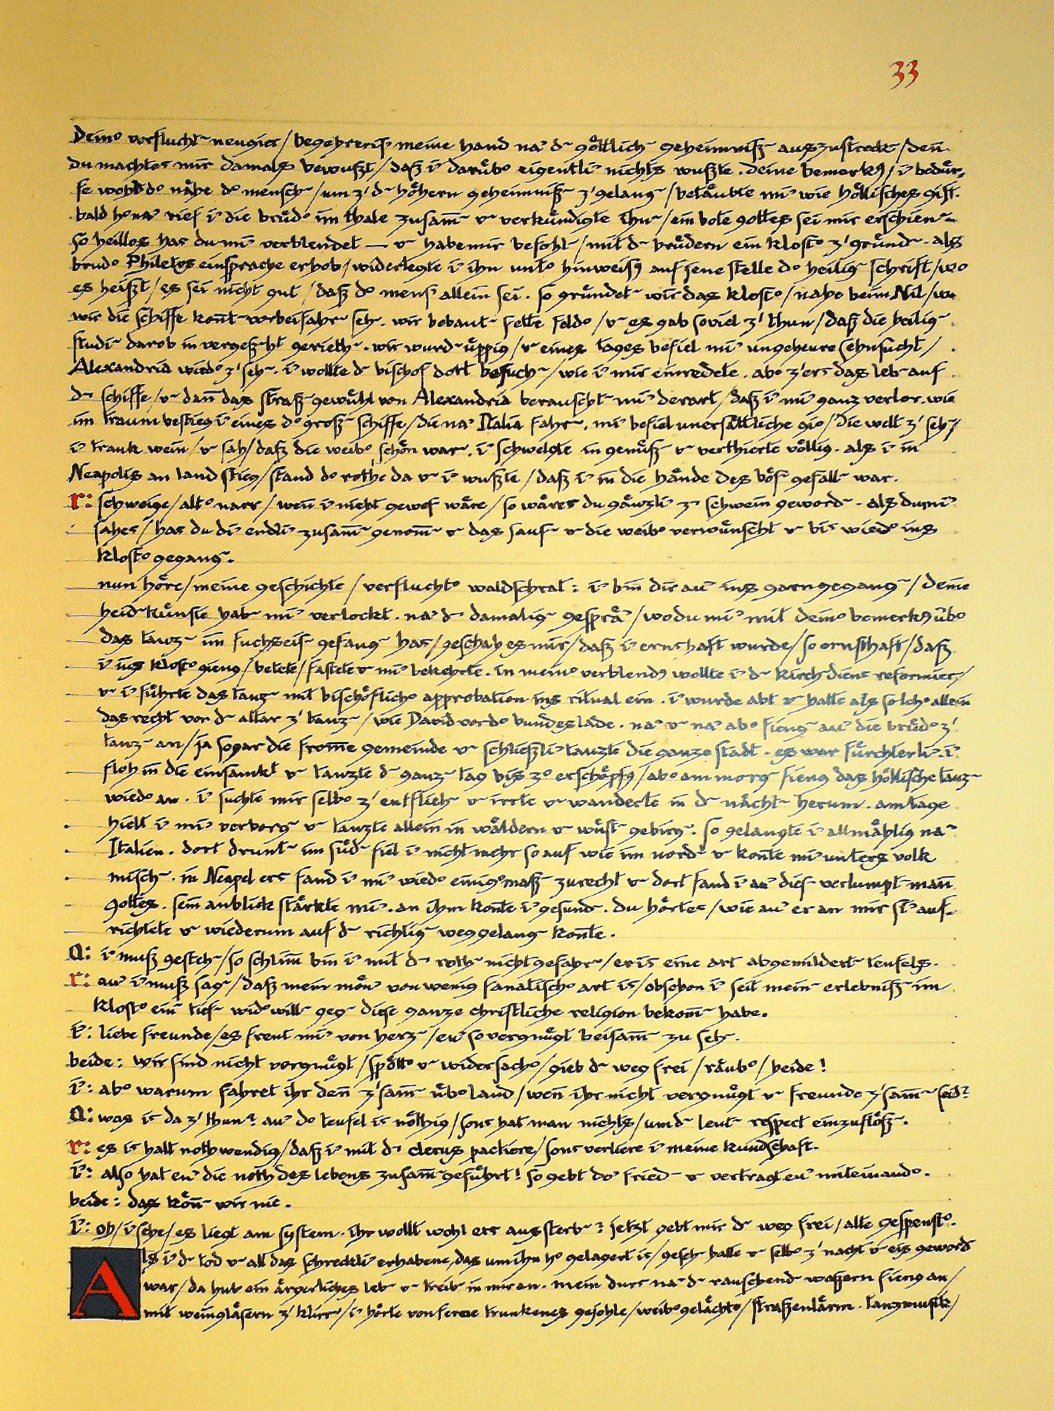 33
Deine verfluchte neugier / begehreris̄ meine hand na͞ d᷑ göttlich᷑ geheimniß᷑ auszustrecke᷑ / deñ
du machtes mir damals bewußt / daß i͞ darüb᷑ eigentli͞ nichts wußte. deine bemerkg / i͞ bedür-
fe wohl d᷑ nähe d᷑ mensch᷑ / um z' d᷑ höhern geheimniß᷑ z' gelang᷑ / betäubte mi͞ wie höllisches gift.
bald hena͞ rief i͞ die brüd᷑ im thale zusam̄ u verkündigte ihn᷑ / ein bote gottes sei mir erschien᷑ —
so heillos has du mi͞ verblendet — u habe mir befohl᷑ / mit d᷑ brüdern ein klost᷑ z' gründ᷑. als
brud᷑ Philetos einsprache erhob / widerlegte i͞ ihn unt᷑ hinweisg auf jene stelle d᷑ heilig᷑ schrift / wo
es heißt / es sei nicht gut / daß d᷑ mens͞ allein sei. so gründet᷑ wir das klost᷑ / nahe beim Nil / wo
wir die schiffe konnt᷑ vorbeifahr᷑ seh᷑. wir bebaut᷑ fette feld᷑ / u es gab soviel z' thun / daß die heilig᷑
studi᷑ darob in vergeß᷑ht gerieth᷑. wir wurd᷑ üppig / u eines tages befiel mi͞ ungeheure sehnsucht /
Alexandria wied᷑ z' seh᷑. i͞ wollte d᷑ bischof dort besuch᷑ / wie i͞ mir einredete. ab᷑ z'ers das leb᷑ auf
d᷑ schiffe / u dañ das straß᷑gewühl von Alexandria berauscht᷑ mi͞ derart / daß i͞ mi͞ ganz verlor. wie
im traum bestieg i͞ eines d᷑ groß᷑ schiffe / die na͞ Italia fahr᷑. mi͞ befiel unersättliche gi᷑ / die welt z' seh᷑ /
i͞ trank wein / u sah / daß die weib᷑ schön war᷑. i͞ schwelgte in genüß᷑ u verthierte völlig. als i͞ in
Neapolis an land stieg / stand d᷑ rothe da u i͞ wußte / daß i͞ in die hände des bös᷑ gefall᷑ war.
r: schweige / alt᷑ narr / weñ i͞ nicht gewes᷑ wäre / so wäres du gänzli͞ z' schwein geword᷑. als du mi͞
sahes / has du di͞ endli͞ zusam̄ genom̄᷑ u das sauf᷑ u die weib᷑ verwünscht u bis wied᷑ ins
klost᷑ gegang᷑.
nun höre / meine geschichte / verflucht᷑ waldschrat: i͞ bin dir au͞ ins garn gegang᷑ / deine
heid᷑künste hab᷑ mi͞ verlockt. na͞ d᷑ damalig᷑ gesprä͞ / wo du mi͞ mit dein᷑ bemerkg üb᷑
das tanz᷑ im fuchseis᷑ gefang᷑ has / geschah es mir / daß i͞ ernsthaft wurde / so ernsthaft / daß
i͞ ins klost᷑ gieng / betete / fastete u mi͞ bekehrte. in mein᷑ verblendg wollte i͞ d᷑ kirch᷑diens reformier᷑ /
u i͞ führte das tanz᷑ mit bischöflich᷑ approbation ins ritual ein. i͞ wurde abt u hatte als solch᷑ allein
das recht vor d᷑ altar z' tanz᷑ / wie David vor d᷑ bundeslade. na͞ u na͞ ab᷑ fieng᷑ au͞ die brüd᷑ z'
tanz᷑ an / ja sogar die from̄e gemeinde u schließli͞ tanzte die ganze stadt. es war fürchterli͞. i͞
floh in die einsamkt u tanzte d᷑ ganz᷑ tag bis z᷑ erschöpfg / ab᷑ am morg᷑ fieng das höllische tanz᷑
wied᷑ an. i͞ suchte mir selb᷑ z' entflieh᷑ u irrte u wanderte in d᷑ nächt᷑ herum. am tage
hielt i͞ mi͞ verborg᷑ u tanzte allein in wäldern u wüst᷑ gebirg᷑. so gelangte i͞ allmählig na͞
Italien. dort drunt᷑ im süd᷑ fiel i͞ nicht mehr so auf wie im nord᷑ u konte mi͞ unters volk
misch᷑. in Neapel ers fand i͞ mi͞ wied᷑ einig᷑maß᷑ zurecht u dort fand i͞ au͞ dies᷑ verlumpt᷑ mañ
gottes. sein anblick stärkte mi͞. an ihm konte i͞ gesund᷑. du hörtes / wie au͞ er an mir si͞ auf-
richtete u wiederum auf d᷑ richtig᷑ weg gelang᷑ konte.
A: i͞ muß gesteh᷑ / so schlim̄ bin i͞ mit d᷑ roth᷑ nicht gefahr᷑ / er is eine art abgemildert᷑ teufels.
r: au͞ i͞ muß sag᷑ / daß mein mön͞ von wenig fanatisch᷑ art is / obschon i͞ seit mein᷑ erlebniß im
klost᷑ ein᷑ tief᷑ wid᷑will᷑ geg᷑ diese ganze christliche religion bekom̄᷑ habe.
i͞: liebe freunde / es freut mi͞ von herz᷑ / eu͞ so vergnügt beisam̄᷑ zu seh᷑.
beide: wir sind nicht vergnügt / spött᷑ u widersach᷑ / gieb d᷑ weg frei / räub᷑ / heide!
i͞: ab᷑ warum fahret ihr deñ z'sam̄᷑ üb᷑ land / weñ ihr nicht vergnügt u freunde z'sam̄᷑ seid?
A: was is da z' thun? au͞ d᷑ teufel is nöthig / sons hat man nichts / um d᷑ leut᷑ respect einzuflöß᷑.
r: es is halt nothwendig / daß i͞ mit d᷑ clerus pactiere / sons verliere i͞ meine kundschaft.
i͞: also hat eu͞ die noth des lebens zusam̄᷑geführt! so gebt do͞ fried᷑ u vertragt eu͞ miteinand᷑.
beide: das köñ᷑ wir nie.
i͞: oh / i͞ sehe / es liegt am system. ihr wollt wohl ers aussterb᷑? jetzt gebt mir d᷑ weg frei / alte gespenst᷑.
Als i͞ d᷑ tod u all das schreckli͞ erhabene, das um ihn h᷑ gelagert is / geseh᷑ hatte u selb᷑ z' nacht u eis geword᷑
war / da hub ein ärgerliches leb᷑ u treib᷑ in mir an. mein durs na͞ d᷑ rauschend᷑ wassern fieng an /
mit weingläsern z' klirr᷑ / i͞ hörte von ferne trunkenes gejohle / weib᷑gelächt᷑ / straßenlärm. tanzmusik /